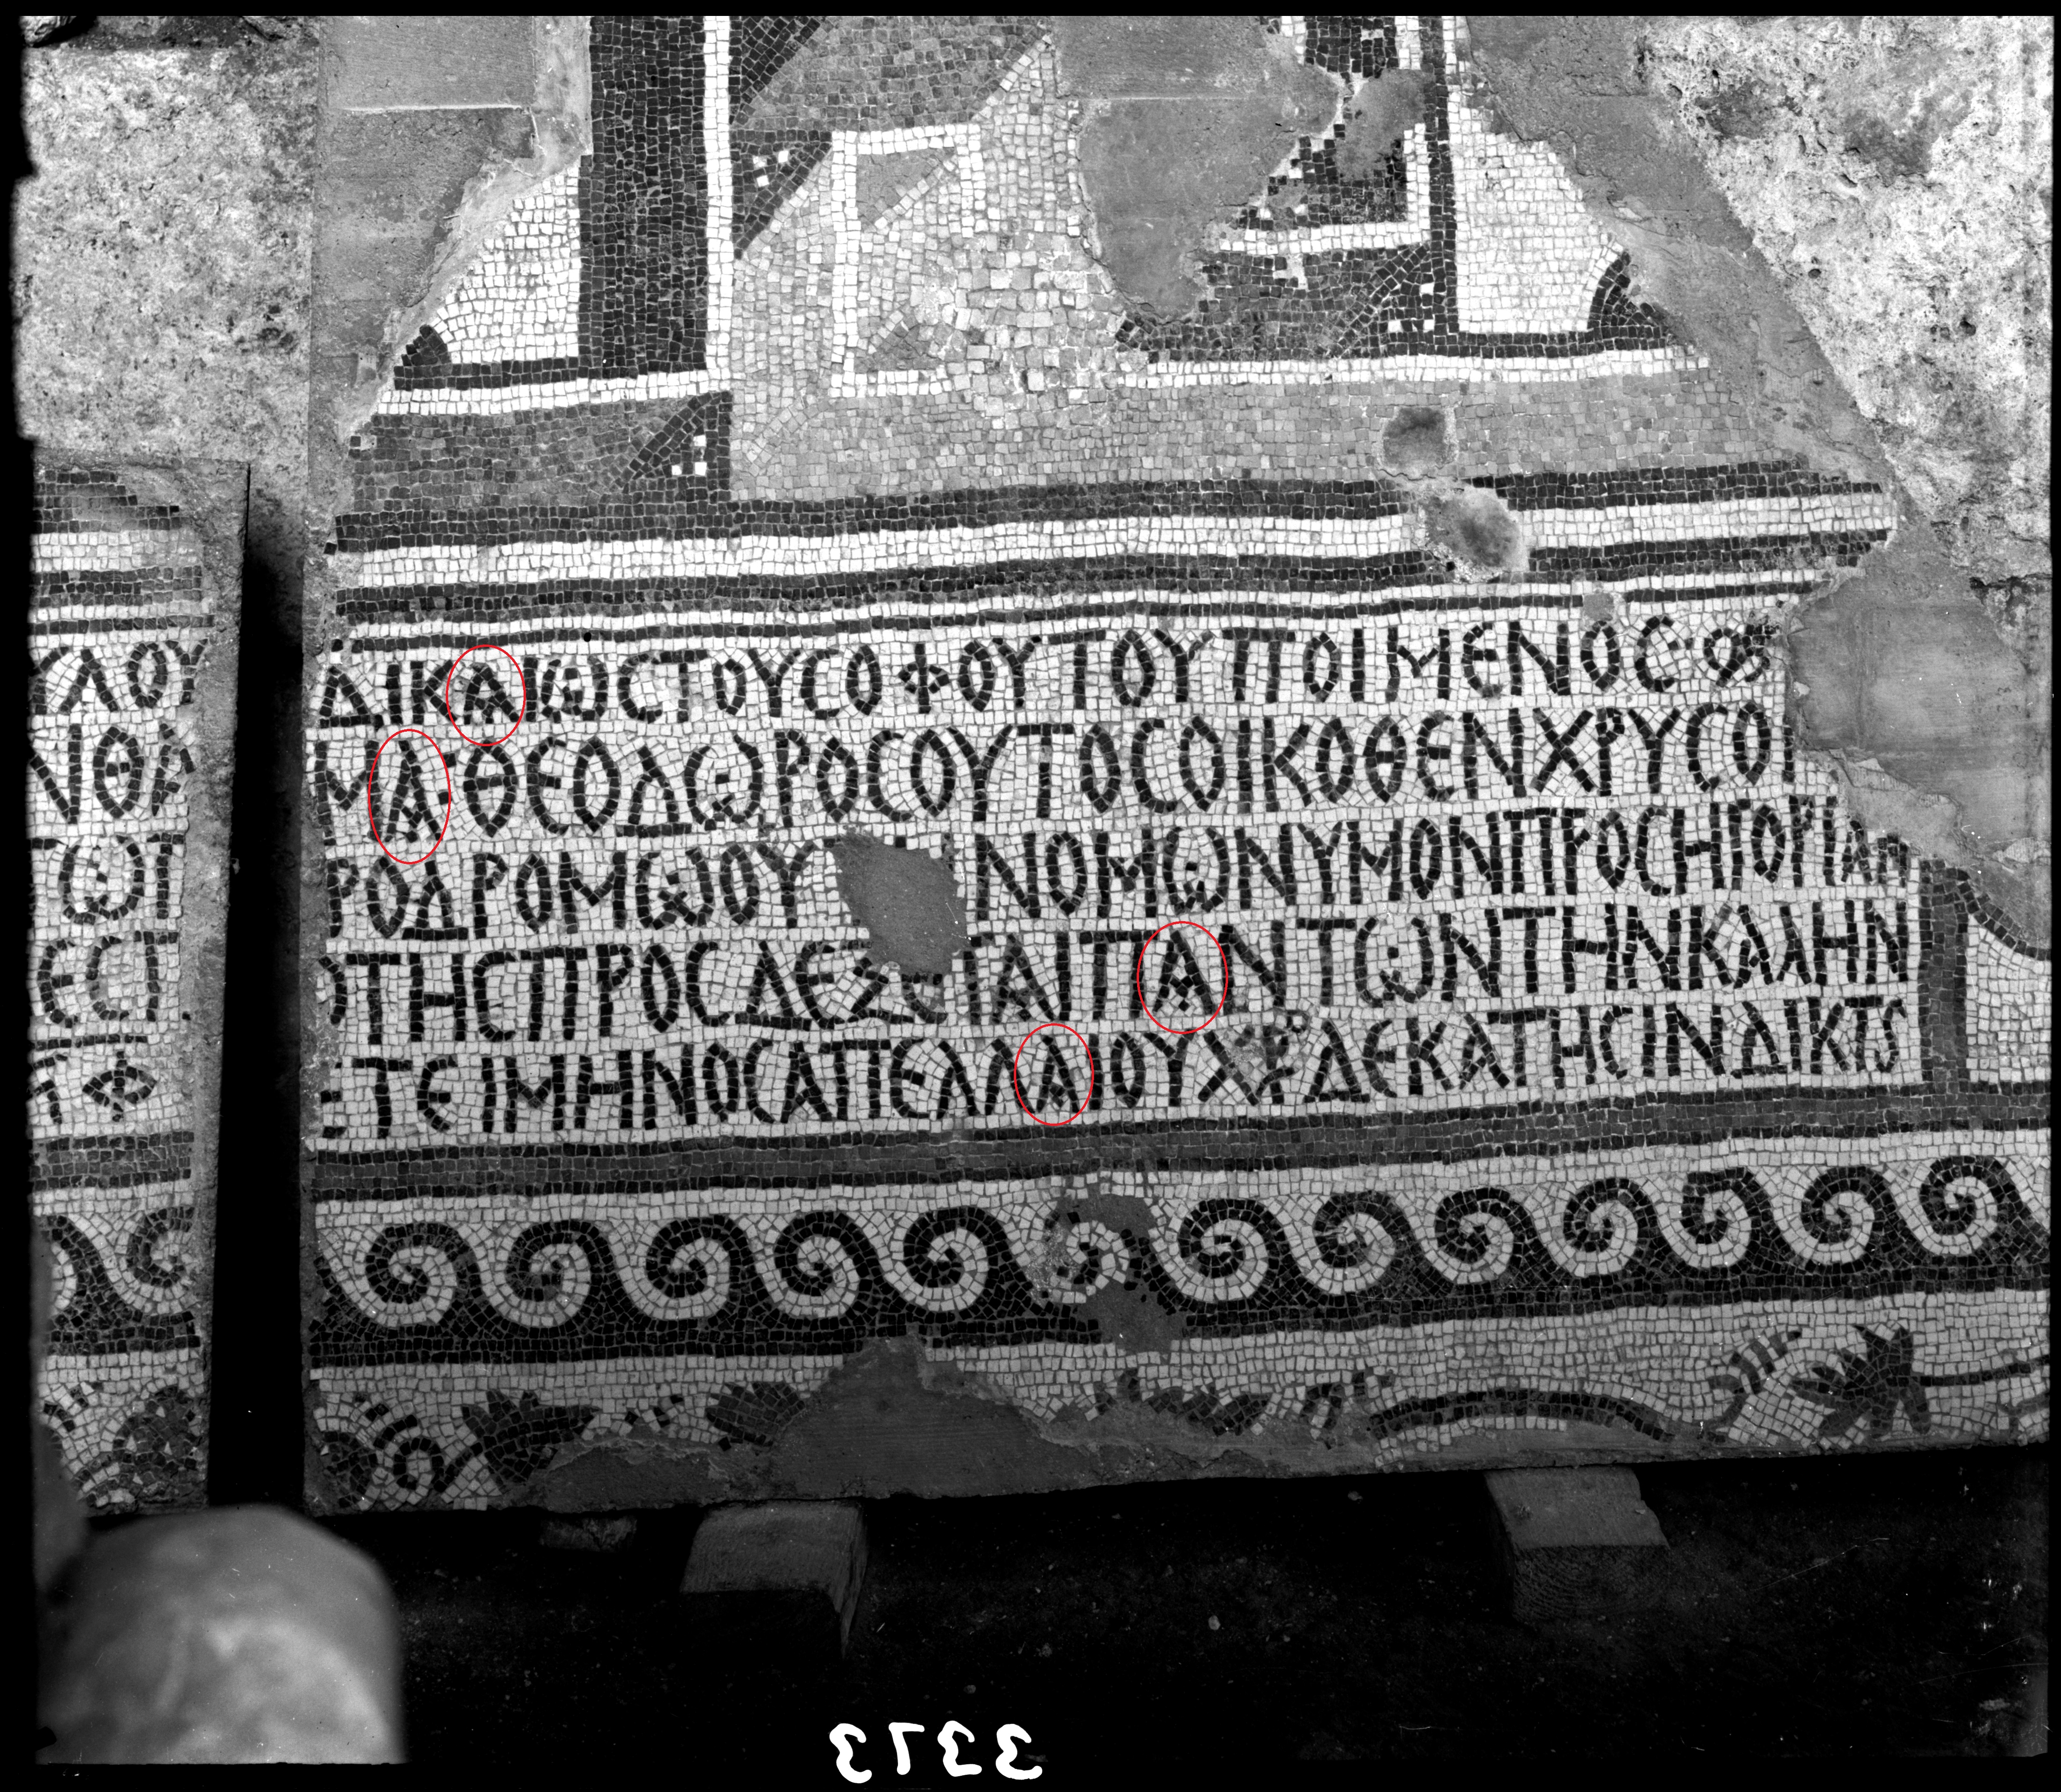 ΥΛΟΥ ΔΙΚΑΙΩϹΤΟΥϹΟΦΟΥΤΟΥΠΟΙΜΕΝΟϹ
ΝΘΑ ΜΑΘΕΟΔΩΡΟϹΟΥΤΟϹΟΙΚΟΘΕΝΧΡΥϹΟΙ
ΤΩΤ ΡΟΔΡΟΜΩΟΥ ΝΟΜΩΝΥΜΟΝΠΡΟϹΗΓΟΡΙΑΝ
ΕϹΤ ΟΤΗϹΠΡΟϹΔΕΞΕΙΑΙΠΑΝΤΩΝΤΗΝΚΑΛΗΝ
Φ ΕΤΕΙΜΗΝΟϹΑΠΕΛΛΑΙΟΥΧΡΔΕΚΑΤΗϹΙΝΔΙΚΤΟ
3373